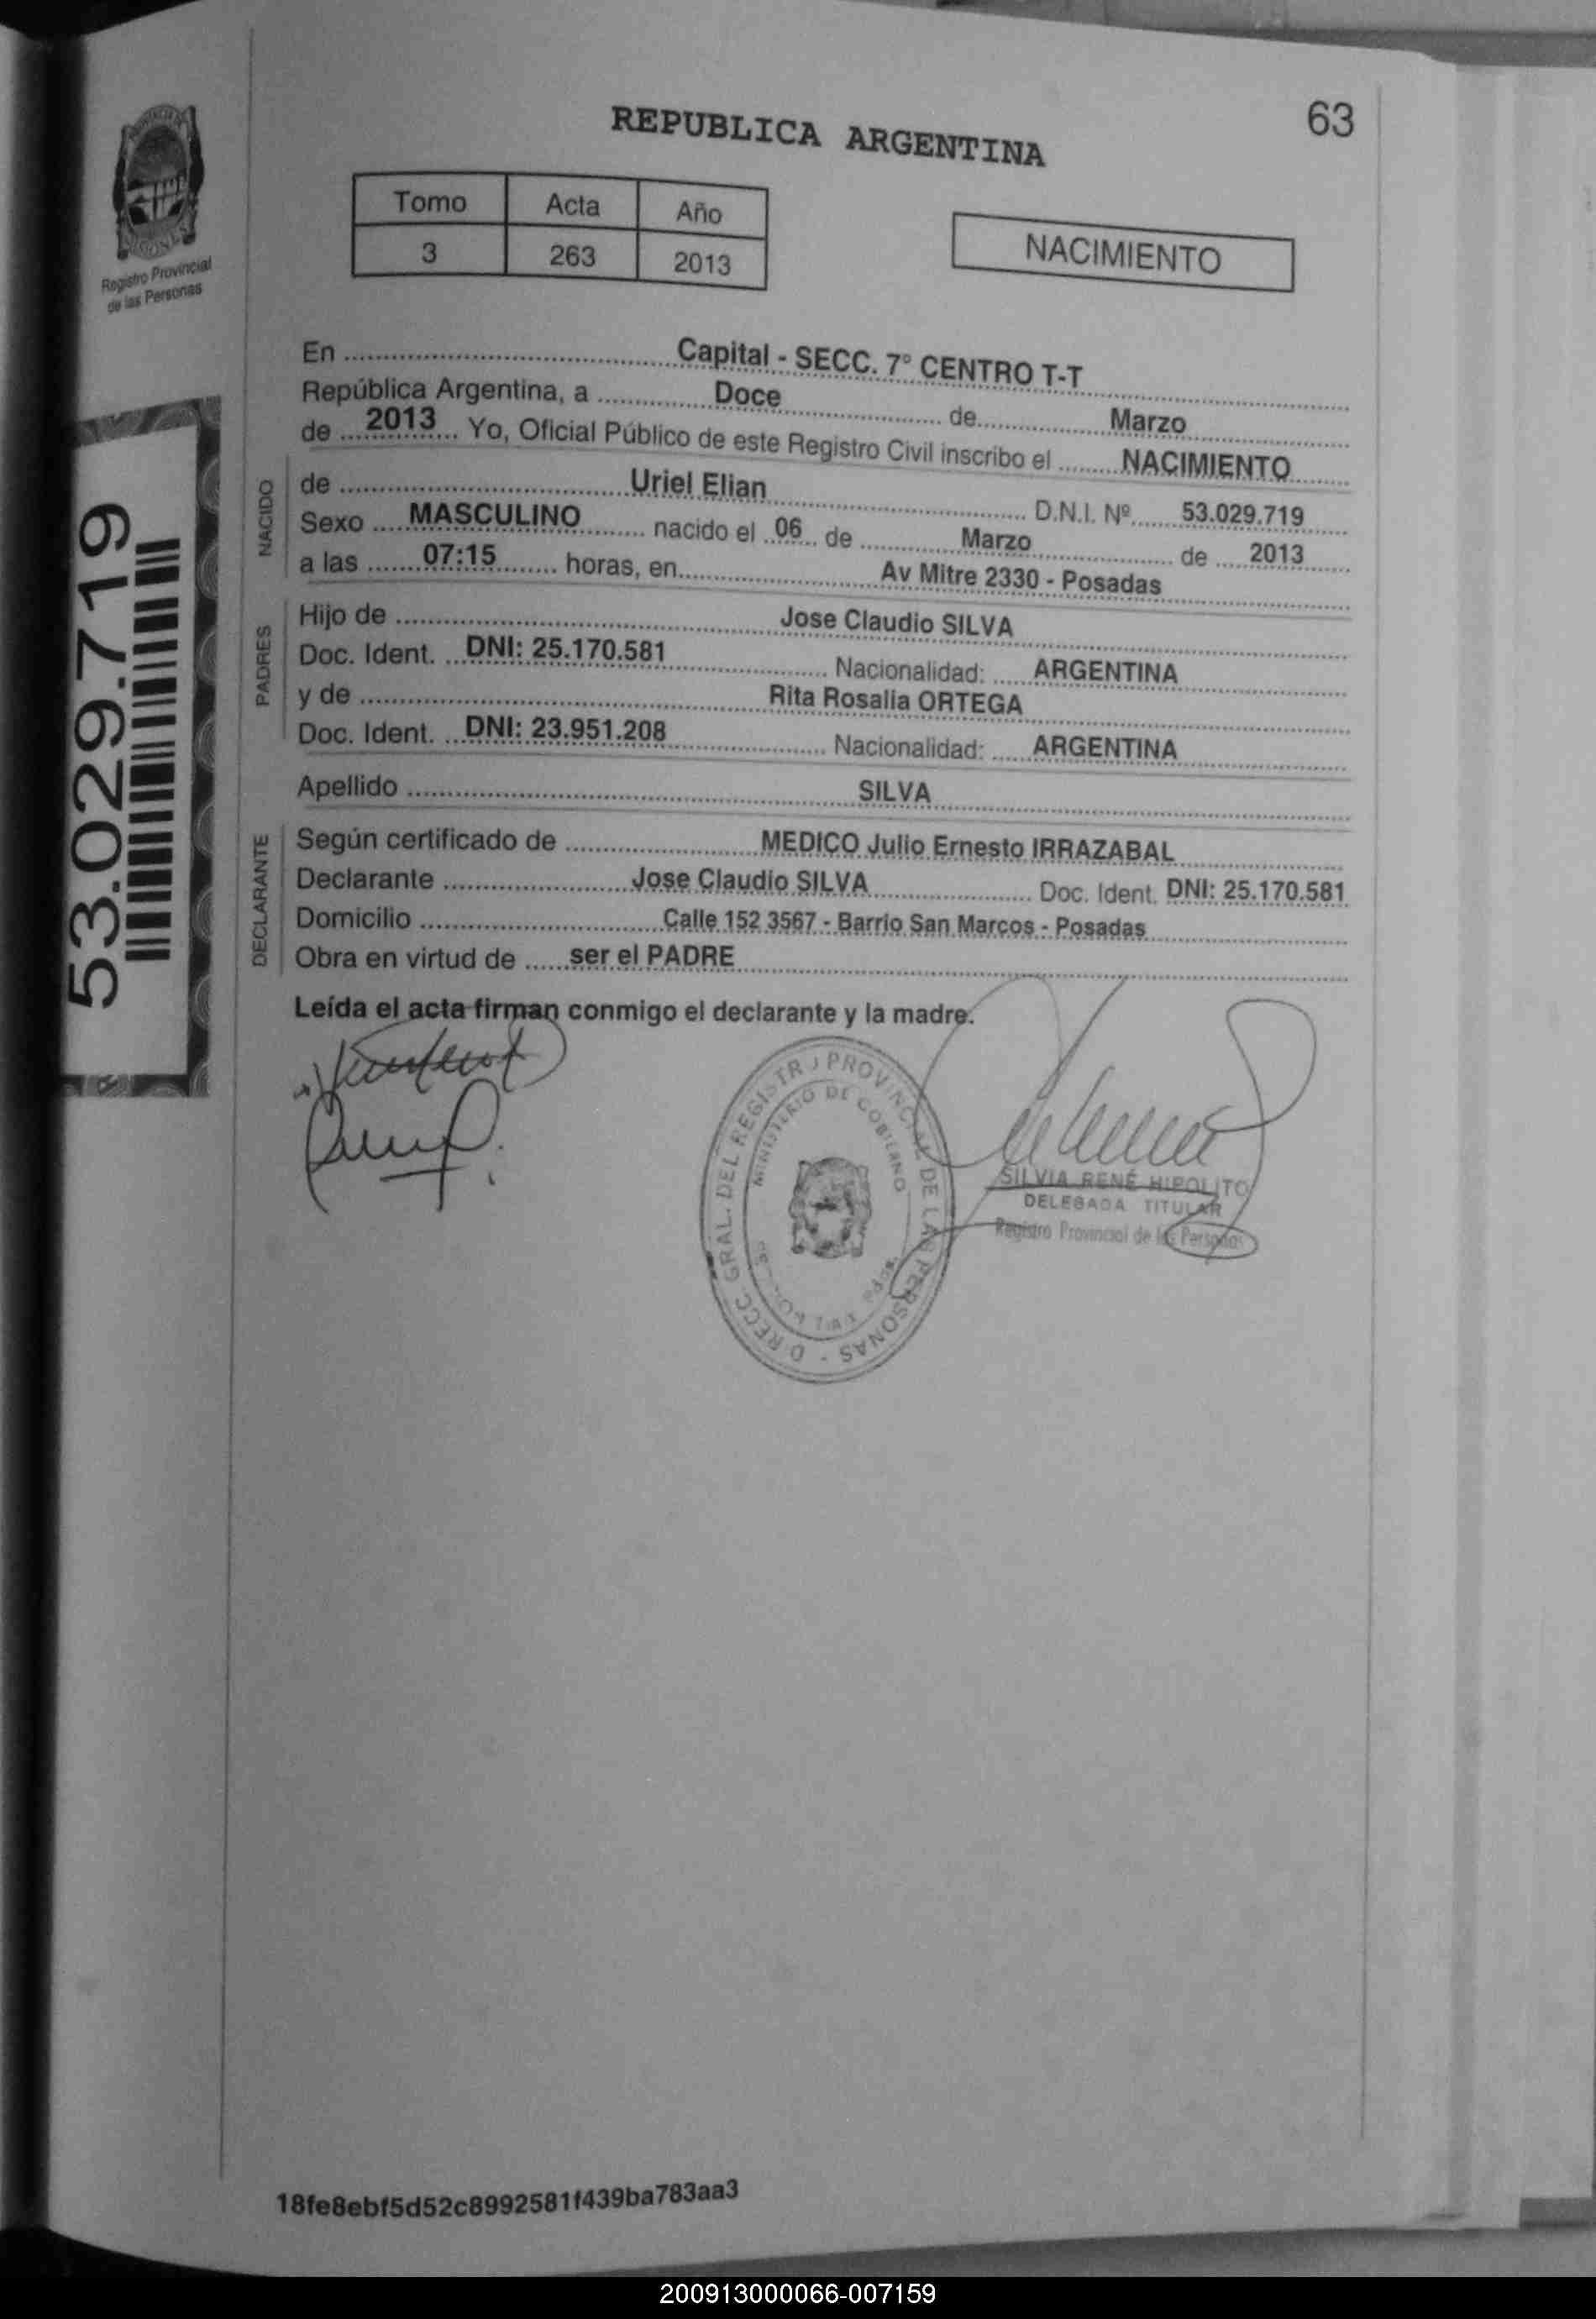 63
REPUBLICA ARGENTINA
Tomo Acta Año
3 263 2013
NACIMIENTO
Registro Provincial
de las Personas
53.029.719
En Capital - SECC. 7° CENTRO T-T
República Argentina, a Doce de Marzo
de 2013 Yo, Oficial Público de este Registro Civil inscribo el NACIMIENTO
NACIDO
de Uriel Elian D.N.I. Nº 53.029.719
Sexo MASCULINO nacido el 06 de Marzo de 2013
a las 07:15 horas, en Av Mitre 2330 - Posadas
PADRES
Hijo de Jose Claudio SILVA
Doc. Ident. DNI: 25.170.581 Nacionalidad: ARGENTINA
y de Rita Rosalia ORTEGA
Doc. Ident. DNI: 23.951.208 Nacionalidad: ARGENTINA
Apellido SILVA
DECLARANTE
Según certificado de MEDICO Julio Ernesto IRRAZABAL
Declarante Jose Claudio SILVA Doc. Ident. DNI: 25.170.581
Domicilio Calle 152 3567 - Barrio San Marcos - Posadas
Obra en virtud de ser el PADRE
Leída el acta firman conmigo el declarante y la madre.
GRAL. DEL REGISTRO PROVINCIAL DE LAS PERSONAS
MINISTERIO DE GOBIERNO
SILVIA RENÉ HIPOLITO
DELEGADA TITULAR
Registro Provincial de las Personas
18fe8ebf5d52c8992581f439ba783aa3
200913000066-007159